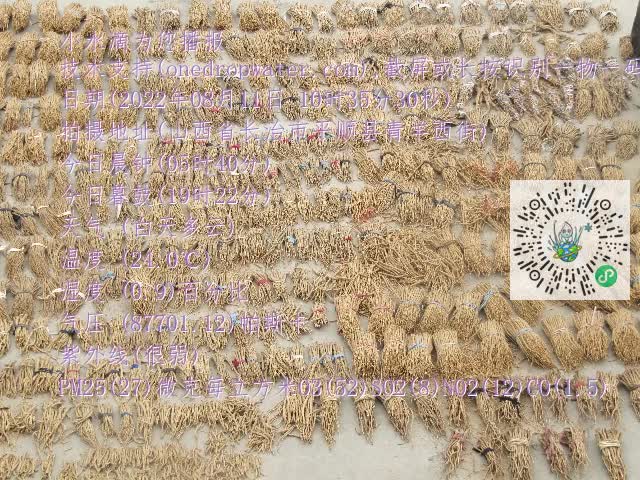 小水滴为您播报
技术支持(onedropwater.com) 截屏或长按识别一物一码
日期(2022年08月11日 10时35分36秒)
拍摄地址(山西省长治市平顺县青羊西街)
今日晨钟(05时40分)
今日暮鼓(19时22分)
天气 (白天多云)
温度 (24.0℃)
湿度 (0.9)百分比
气压 (87701.12)帕斯卡
紫外线(很弱)
PM25(27)微克每立方米O3(52)SO2(8)NO2(12)CO(1.5)